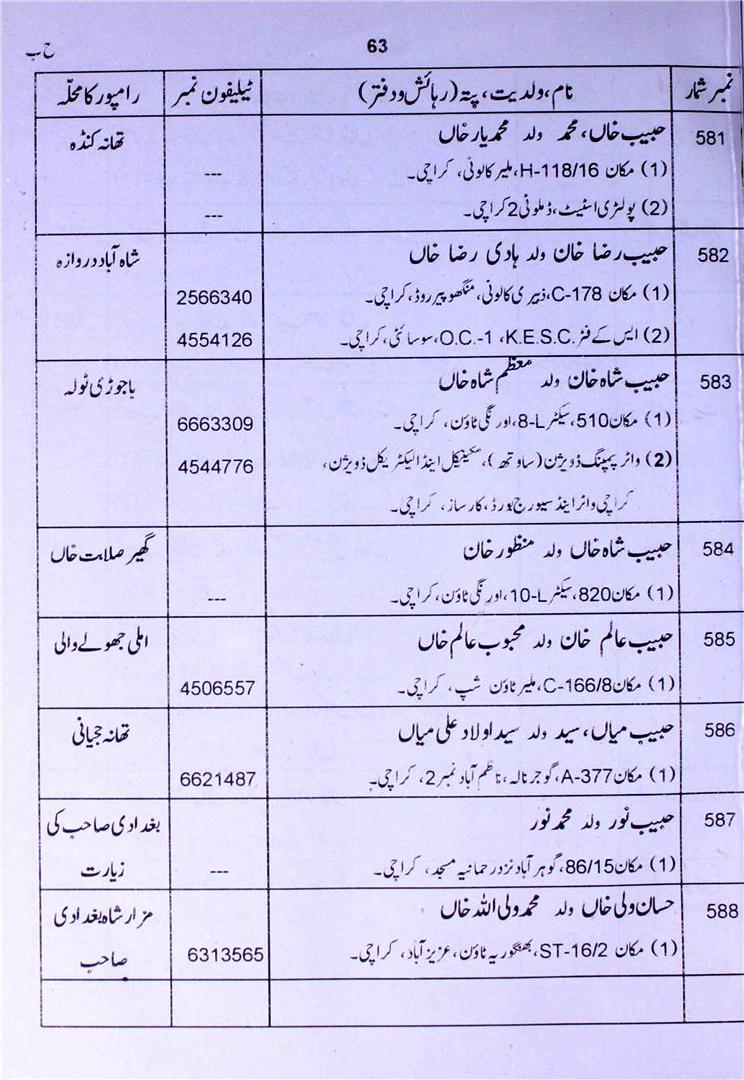 63
ح ب
نمبر شمار نام، ولدیت، پتہ (رہائش و دفتر) ٹیلیفون نمبر رامپور کا محلّہ
581 حبیب خاں، محمد ولد محمد یار خاں تھانہ کنڈہ
(1) مکان H-118/16، ملیر کالونی، کراچی۔ ---
(2) پولٹری اسٹیٹ، ڈملوٹی 2 کراچی۔ ---
582 حبیب رضا خان ولد ہادی رضا خاں شاہ آباد دروازہ
(1) مکان C-178، زبیری کالونی، منگھوپیر روڈ، کراچی۔ 2566340
(2) ایس کے فٹر K.E.S.C.، O.C.-1، سوسائٹی، کراچی۔ 4554126
583 حبیب شاہ خان ولد معظم شاہ خاں باجوڑی ٹولہ
(1) مکان 510، سیکٹر 8-L، اورنگی ٹاؤن، کراچی۔ 6663309
(2) واٹر پمپنگ ڈویژن (ساوتھ)، مکینیکل اینڈ الیکٹریکل ڈویژن، 4544776
کراچی واٹر اینڈ سیوریج بورڈ، کارساز، کراچی۔
584 حبیب شاہ خاں ولد منظور خان گھیر صلابت خاں
(1) مکان 820، سیکٹر 10-L، اورنگی ٹاؤن، کراچی۔ ---
585 حبیب عالم خان ولد محبوب عالم خاں املی جھولے والی
(1) مکان C-166/8، ملیر ٹاؤن شپ، کراچی۔ 4506557
586 حبیب میاں، سید ولد سید اولاد علی میاں تھانہ جیانی
(1) مکان A-377، گوجر نالہ، ناظم آباد نمبر 2، کراچی۔ 6621487
587 حبیب نور ولد محمد نور بغدادی صاحب کی
(1) مکان 86/15، گوہر آباد نزد رحمانیہ مسجد، کراچی۔ --- زیارت
588 حسان ولی خاں ولد محمد ولی اللہ خاں مزار شاہ بغدادی
(1) مکان ST-16/2، بھنگوریہ ٹاؤن، عزیز آباد، کراچی۔ 6313565 صاحب